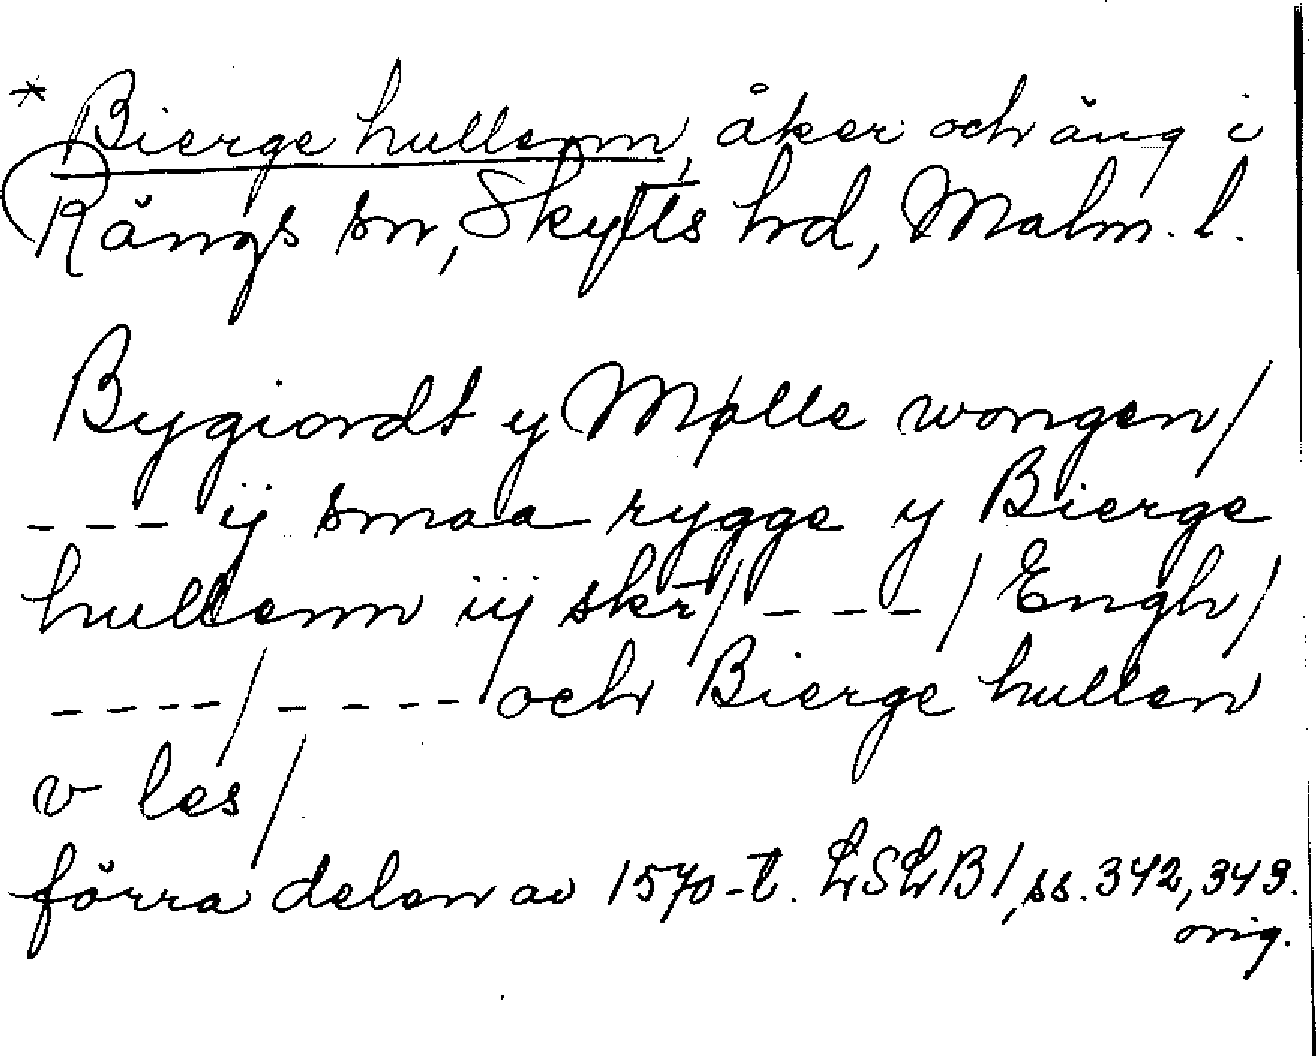 * Bierge hullenn, åker och äng i
Rängs sn, Skytts hd, Malm. l.
Bygiordt y Mølle wongen/
--- ij smaa rygge y Bierge
hullenn iij skr̄/ ---/ Engh/
----/---- och Bierge hullen
v les/
förra delen av 1570-t. LSLB1, ss. 342, 343.
orig.